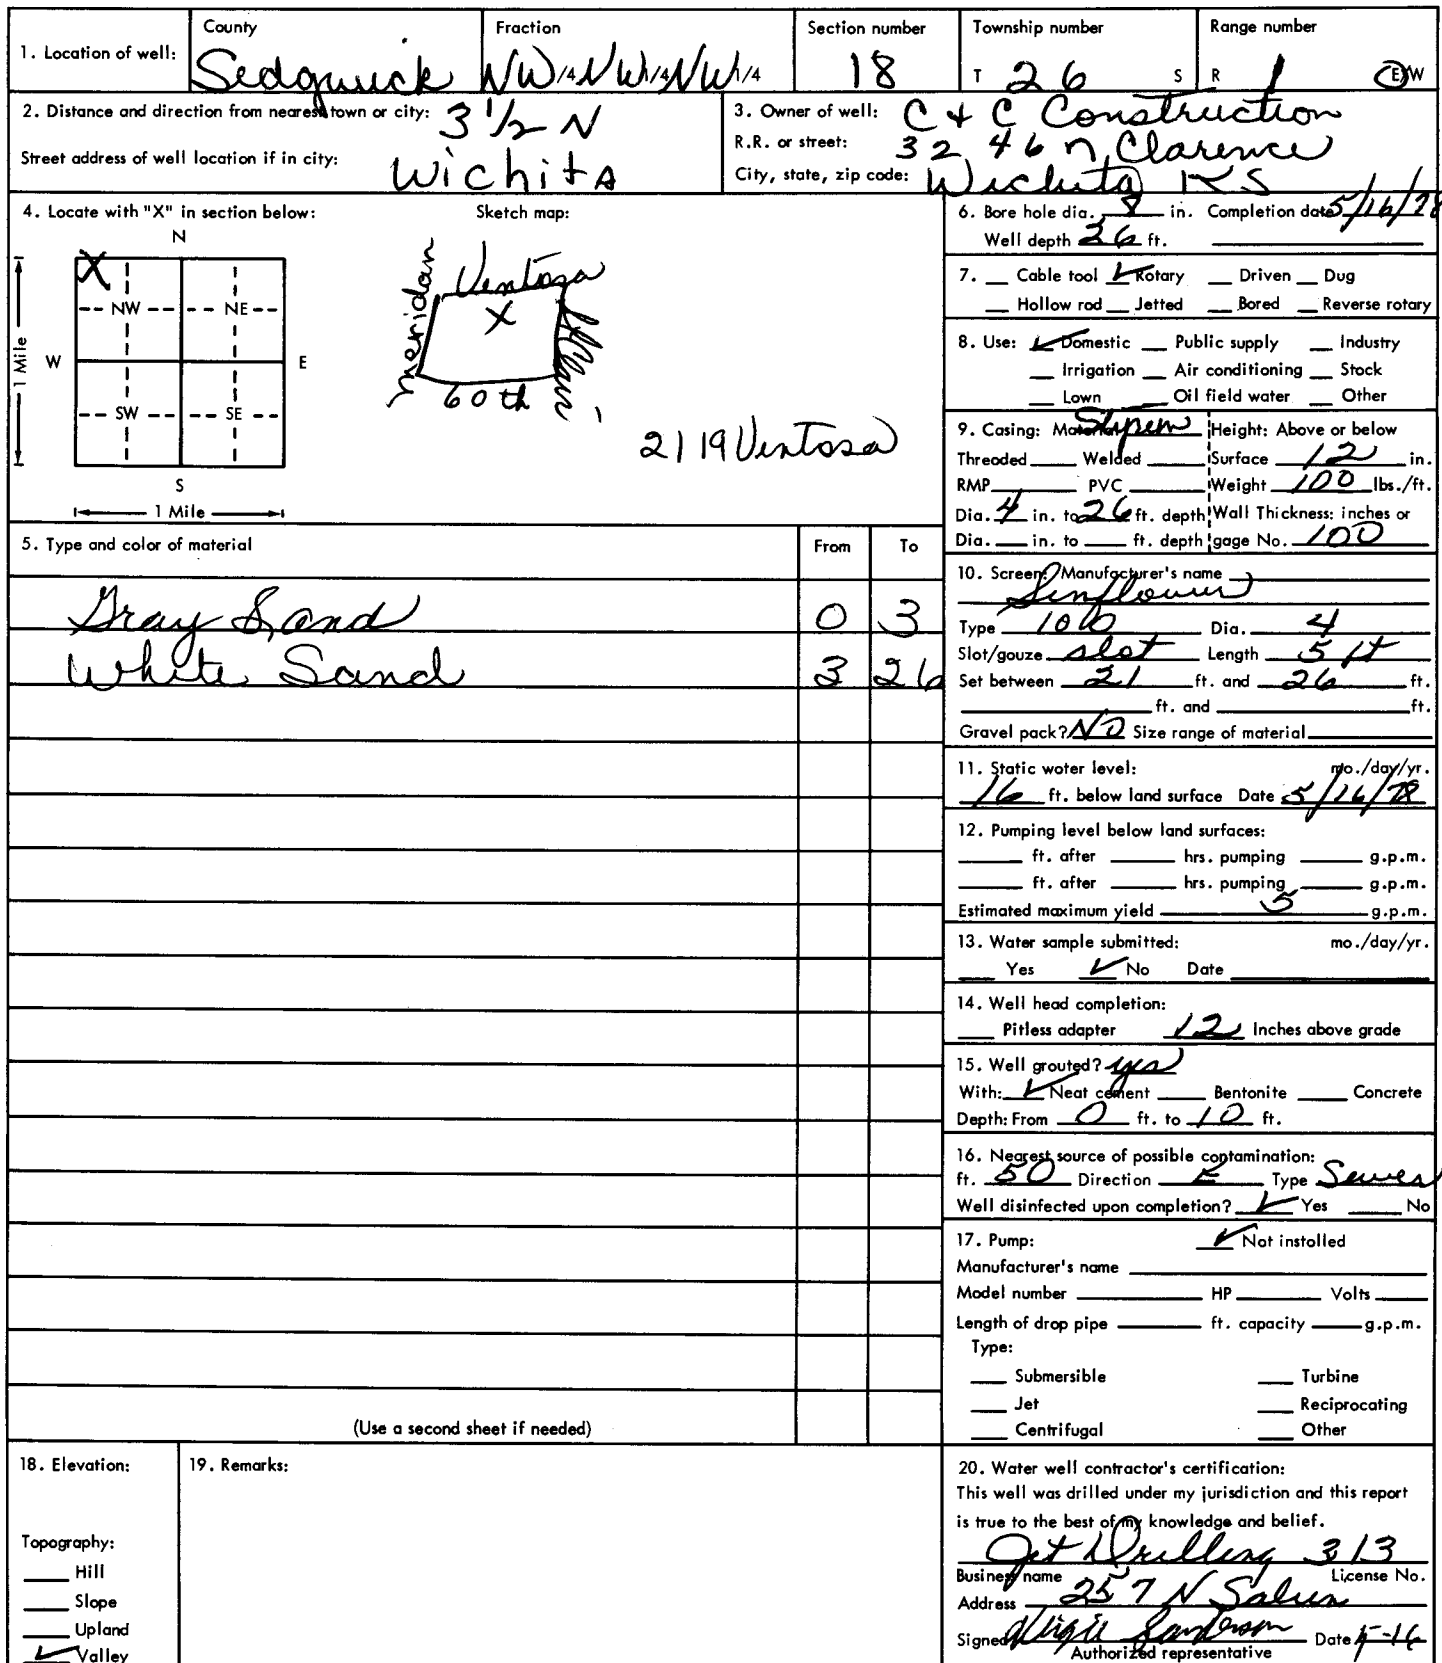 County Fraction Section number Township number Range number
1. Location of well: Sedgwick NW 1/4 NW 1/4 NW 1/4 18 T 26 S R 1 E/W
2. Distance and direction from nearest town or city: 3 1/2 N
Street address of well location if in city: Wichita
3. Owner of well: C & C Construction
R.R. or street: 3246 N Clarence
City, state, zip code: Wichita KS
4. Locate with "X" in section below: Sketch map:
N
X
NW NE
W E
1 Mile
SW SE
S
1 Mile
meridan Ventosa
X
60th
2119 Ventosa
5. Type and color of material From To
Gray Sand 0 3
White Sand 3 26
(Use a second sheet if needed)
6. Bore hole dia. 8 in. Completion date 5/16/78
Well depth 26 ft.
7. Cable tool ✓ Rotary Driven Dug
Hollow rod Jetted Bored Reverse rotary
8. Use: ✓ Domestic Public supply Industry
Irrigation Air conditioning Stock
Lown Oil field water Other
9. Casing: Material Height: Above or below
Threaded Welded Surface 12 in.
RMP PVC Weight 100 lbs./ft.
Dia. 4 in. to 26 ft. depth Wall Thickness: inches or
Dia. in. to ft. depth gage No. 100
10. Screen: Manufacturer's name
Sunflower
Type 100 Dia. 4
Slot/gouze slot Length 5 ft
Set between 21 ft. and 26 ft.
ft. and ft.
Gravel pack? NO Size range of material
11. Static woter level: mo./day/yr.
16 ft. below land surface Date 5/16/78
12. Pumping level below land surfaces:
ft. after hrs. pumping g.p.m.
ft. after hrs. pumping g.p.m.
Estimated maximum yield 5 g.p.m.
13. Water sample submitted: mo./day/yr.
Yes ✓ No Date
14. Well head completion:
Pitless adapter 12 Inches above grade
15. Well grouted? yes
With: ✓ Neat cement Bentonite Concrete
Depth: From 0 ft. to 10 ft.
16. Nearest source of possible contamination:
ft. 50 Direction E Type Sewer
Well disinfected upon completion? ✓ Yes No
17. Pump: ✓ Not installed
Manufacturer's name
Model number HP Volts
Length of drop pipe ft. capacity g.p.m.
Type:
Submersible Turbine
Jet Reciprocating
Centrifugal Other
18. Elevation:
Topography:
Hill
Slope
Upland
✓ Valley
19. Remarks:
20. Water well contractor's certification:
This well was drilled under my jurisdiction and this report
is true to the best of my knowledge and belief.
Jet Drilling 313
Business name License No.
Address 257 N
Signed Virgil Sanderson Date 5-16
Authorized representative